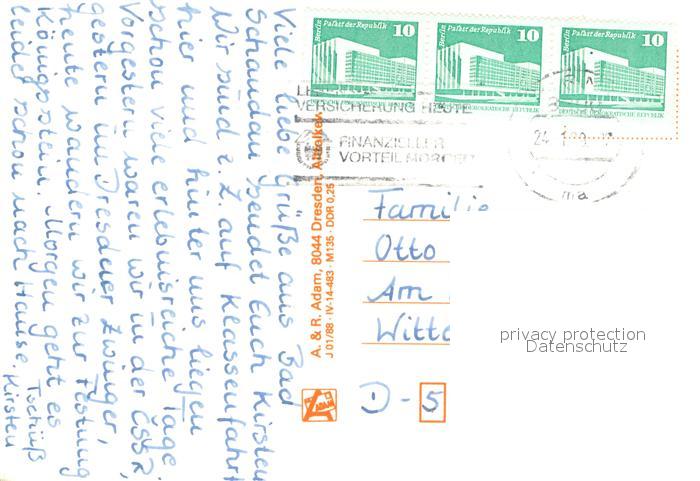 Viele liebe Grüße aus Bad
Schandau sendet Euch Kirsten
Wir sind z. Z. auf Klassenfahrt
hier und hinter uns liegen
schon viele erlebnisreiche Tage.
Vorgestern waren wir in der ČSSR,
gestern im Dresdener Zwinger,
heute wandern wir zur Festung
Königstein. Morgen geht es
leider schon nach Hause.
Tschüß
Kirsten
A. & R. Adam, 8044 Dresden, Altwilkev
J 01/88 · IV-14-483 · M135 · DDR 0,25
Berlin Palast der Republik 10
DEUTSCHE DEMOKRATISCHE REPUBLIK
Berlin Palast der Republik 10
DEUTSCHE DEMOKRATISCHE REPUBLIK
Berlin Palast der Republik 10
DEUTSCHE DEMOKRATISCHE REPUBLIK
VERSICHERUNG HEUTE
FINANZIELLER
VORTEIL MORGEN
24
Familie
Otto
Am
Witte
D - 5
privacy protection
Datenschutz